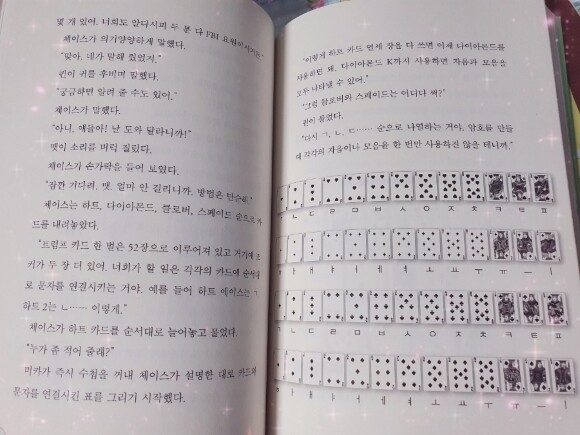 몇 개 있어. 너희도 알다시피 두 분 다 FBI
제이스가 의기양양하게 말했다.
"맞아, 네가 말해 줬었지."
핀이 귀를 후비며 말했다.
"궁금하면 알려 줄 수도 있어."
제이스가 말했다.
"아니, 얘들아! 난 도와 달라니까!"
맷이 소리를 버럭 질렀다.
제이스가 손가락을 들어 보였다.
"잠깐 기다려, 맷. 얼마 안 걸리니까. 방법은 단순해."
제이스는 하트, 다이아몬드, 클로버, 스페이드 순으로 카
드를 내려놓았다.
"트럼프 카드 한 벌은 52장으로 이루어져 있고 거기에 조
커가 두 장 더 있어. 너희가 할 일은 각각의 카드에 순서대
로 문자를 연결시키는 거야. 예를 들어 하트 에이스는 ㄱ
하트 2는 ㄴ…… 이렇게."
제이스가 하트 카드를 순서대로 늘어놓고 물었다.
"누가 좀 적어 줄래?"
미카가 즉시 수첩을 꺼내 제이스가 설명한 대로 카드와
문자를 연결시킨 표를 그리기 시작했다.
"이렇게 하트 카드 열세 장을 다 쓰면 이제 다이아몬드를
사용하면 돼. 다이아몬드 K까지 사용하면 자음과 모음을
모두 나타낼 수 있어."
"그럼 클로버와 스페이드는 어디다 써?"
핀이 물었다.
"다시 ㄱ, ㄴ, ㄷ…… 순으로 나열하는 거야. 암호를 만들
때 각각의 자음이나 모음을 한 번만 사용하진 않을 테니까."
ㄴ ㄷ ㄹ ㅁ ㅂ ㅅ ㅇ ㅈ ㅊ ㅋ ㅌ ㅍ
ㅐ ㅑ ㅓ ㅔ ㅕ ㅗ ㅛ ㅜ ㅠ ㅡ ㅣ
ㄴ ㄷ ㄹ ㅁ ㅂ ㅅ ㅇ ㅈ ㅊ ㅋ ㅌ ㅍ
ㅐ ㅑ ㅓ ㅔ ㅕ ㅗ ㅛ ㅜ ㅠ ㅡ ㅣ